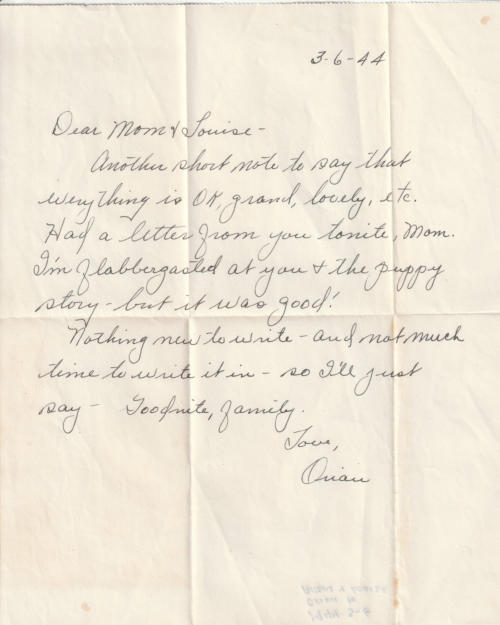 3-6-44
Dear Mom & Louise -
Another short note to say that
everything is OK, grand, lovely, etc.
Had a letter from you tonite, Mom.
I'm flabbergasted at you & the puppy
story - but it was good!
Nothing new to write - and not much
time to write it in - so I'll just
say - Goodnite, family.
Love,
Orian